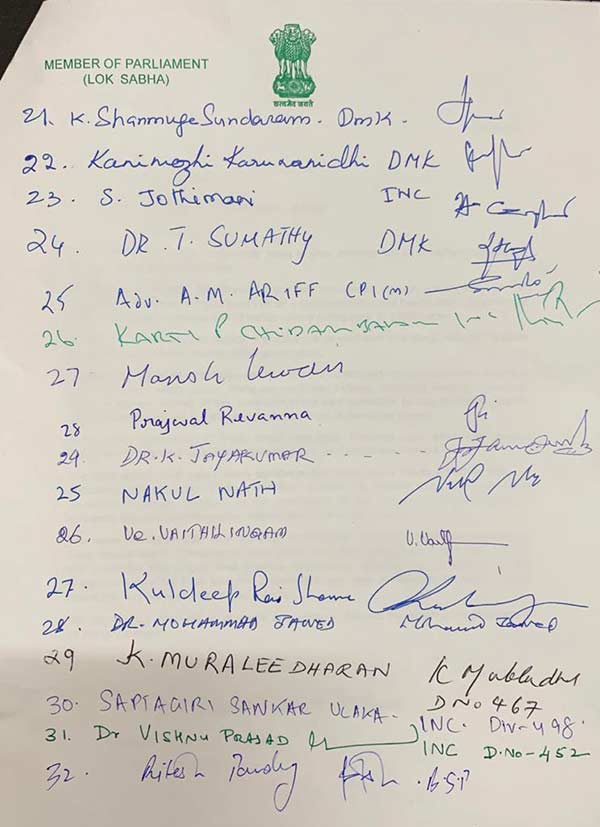 MEMBER OF PARLIAMENT
(LOK SABHA)
सत्यमेव जयते
21. K. Shanmuga Sundaram. DMK.
22. Kanimozhi Karunanidhi DMK
23. S. Jothimani INC
24. DR. T. SUMATHY DMK
25 Adv. A.M. ARIFF CPI(M)
26. KARTI P CHIDAMBARAM INC
27 Manish Tewari
28 Prajwal Revanna
29. DR. K. JAYAKUMAR
25 NAKUL NATH
26. Ve. VAITHILINGAM
27. Kuldeep Rai Sharma
28. DR. MOHAMMAD JAWED
29 K. MURALEEDHARAN
D No 467
30. SAPTAGIRI SANKAR ULAKA. INC. Div-498.
31. Dr VISHNU PRASAD INC D.No-452
32. Ritesh Pandey B.S.P